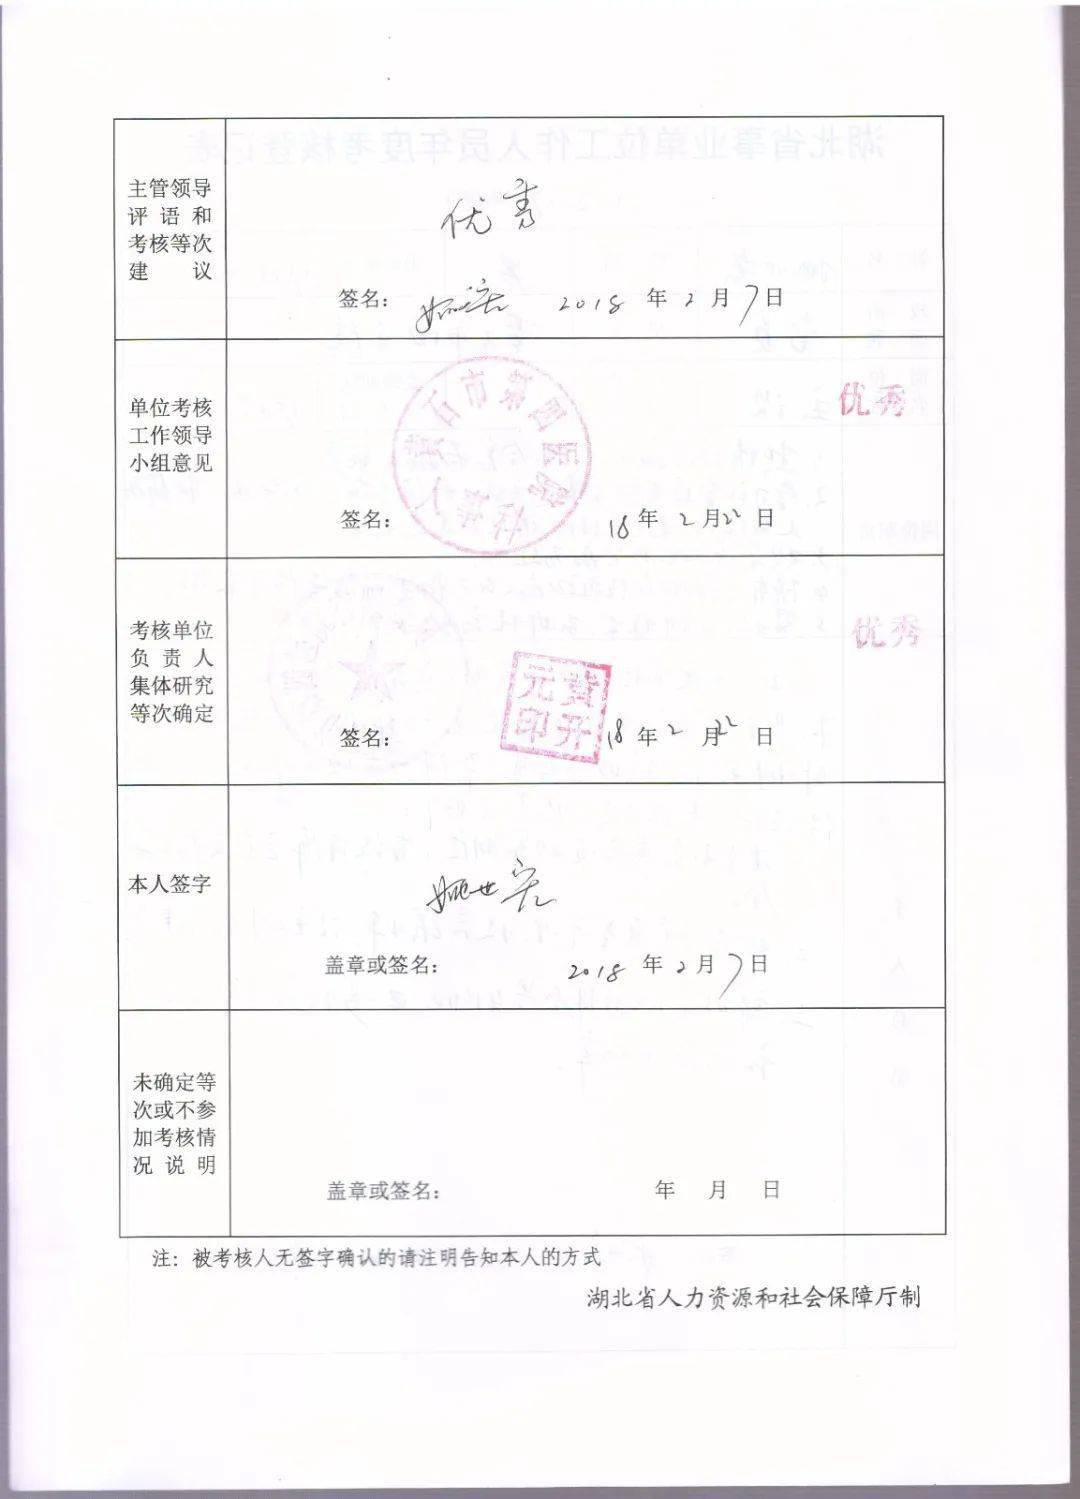 主管领导
评语和
考核等次
建议
优秀
签名： 2018 年 2 月 7 日
单位考核
工作领导
小组意见
黄石市第四医院
人事科
优秀
签名： 18 年 2 月 22 日
考核单位
负责人
集体研究
等次确定
优秀
黄开
元印
签名： 18 年 2 月 22 日
本人签字
姚世宏
盖章或签名： 2018 年 2 月 7 日
未确定等
次或不参
加考核情
况说明
盖章或签名： 年 月 日
注：被考核人无签字确认的请注明告知本人的方式
湖北省人力资源和社会保障厅制